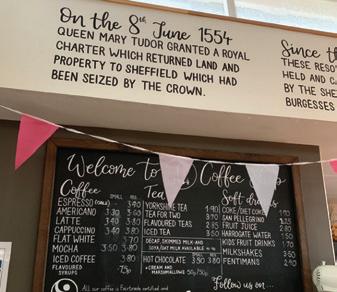 On the 8th June 1554
QUEEN MARY TUDOR GRANTED A ROYAL
CHARTER WHICH RETURNED LAND AND
PROPERTY TO SHEFFIELD WHICH HAD
BEEN SEIZED BY THE CROWN.
Since
THESE RESO
HELD AND
BY THE SHE
BURGESSES
Welcome to Coffee
Coffee
ESPRESSO
AMERICANO
LATTE
CAPPUCCINO 3.40 3.80
FLAT WHITE 3.70
MOCHA 3.50 3.80
ICED COFFEE 3.80
FLAVOURED SYRUPS 75p
Tea
YORKSHIRE TEA 1.90
TEA FOR TWO 3.70
FLAVOURED TEAS 2.35
ICED TEA
DECAF, SKIMMED MILK AND
OAT MILK AVAILABLE
HOT CHOCOLATE 3.50 3.80
+ CREAM AND MARSHMALLOWS 50p/750p
Soft drinks
COKE/DIET COKE
SAN PELLEGRINO
FRUIT JUICE
HARROGATE WATER 1.50
KIDS FRUIT DRINKS 1.70
MILKSHAKES
FENTIMANS
Follow us on...
All our coffee is Fairtrade certified and